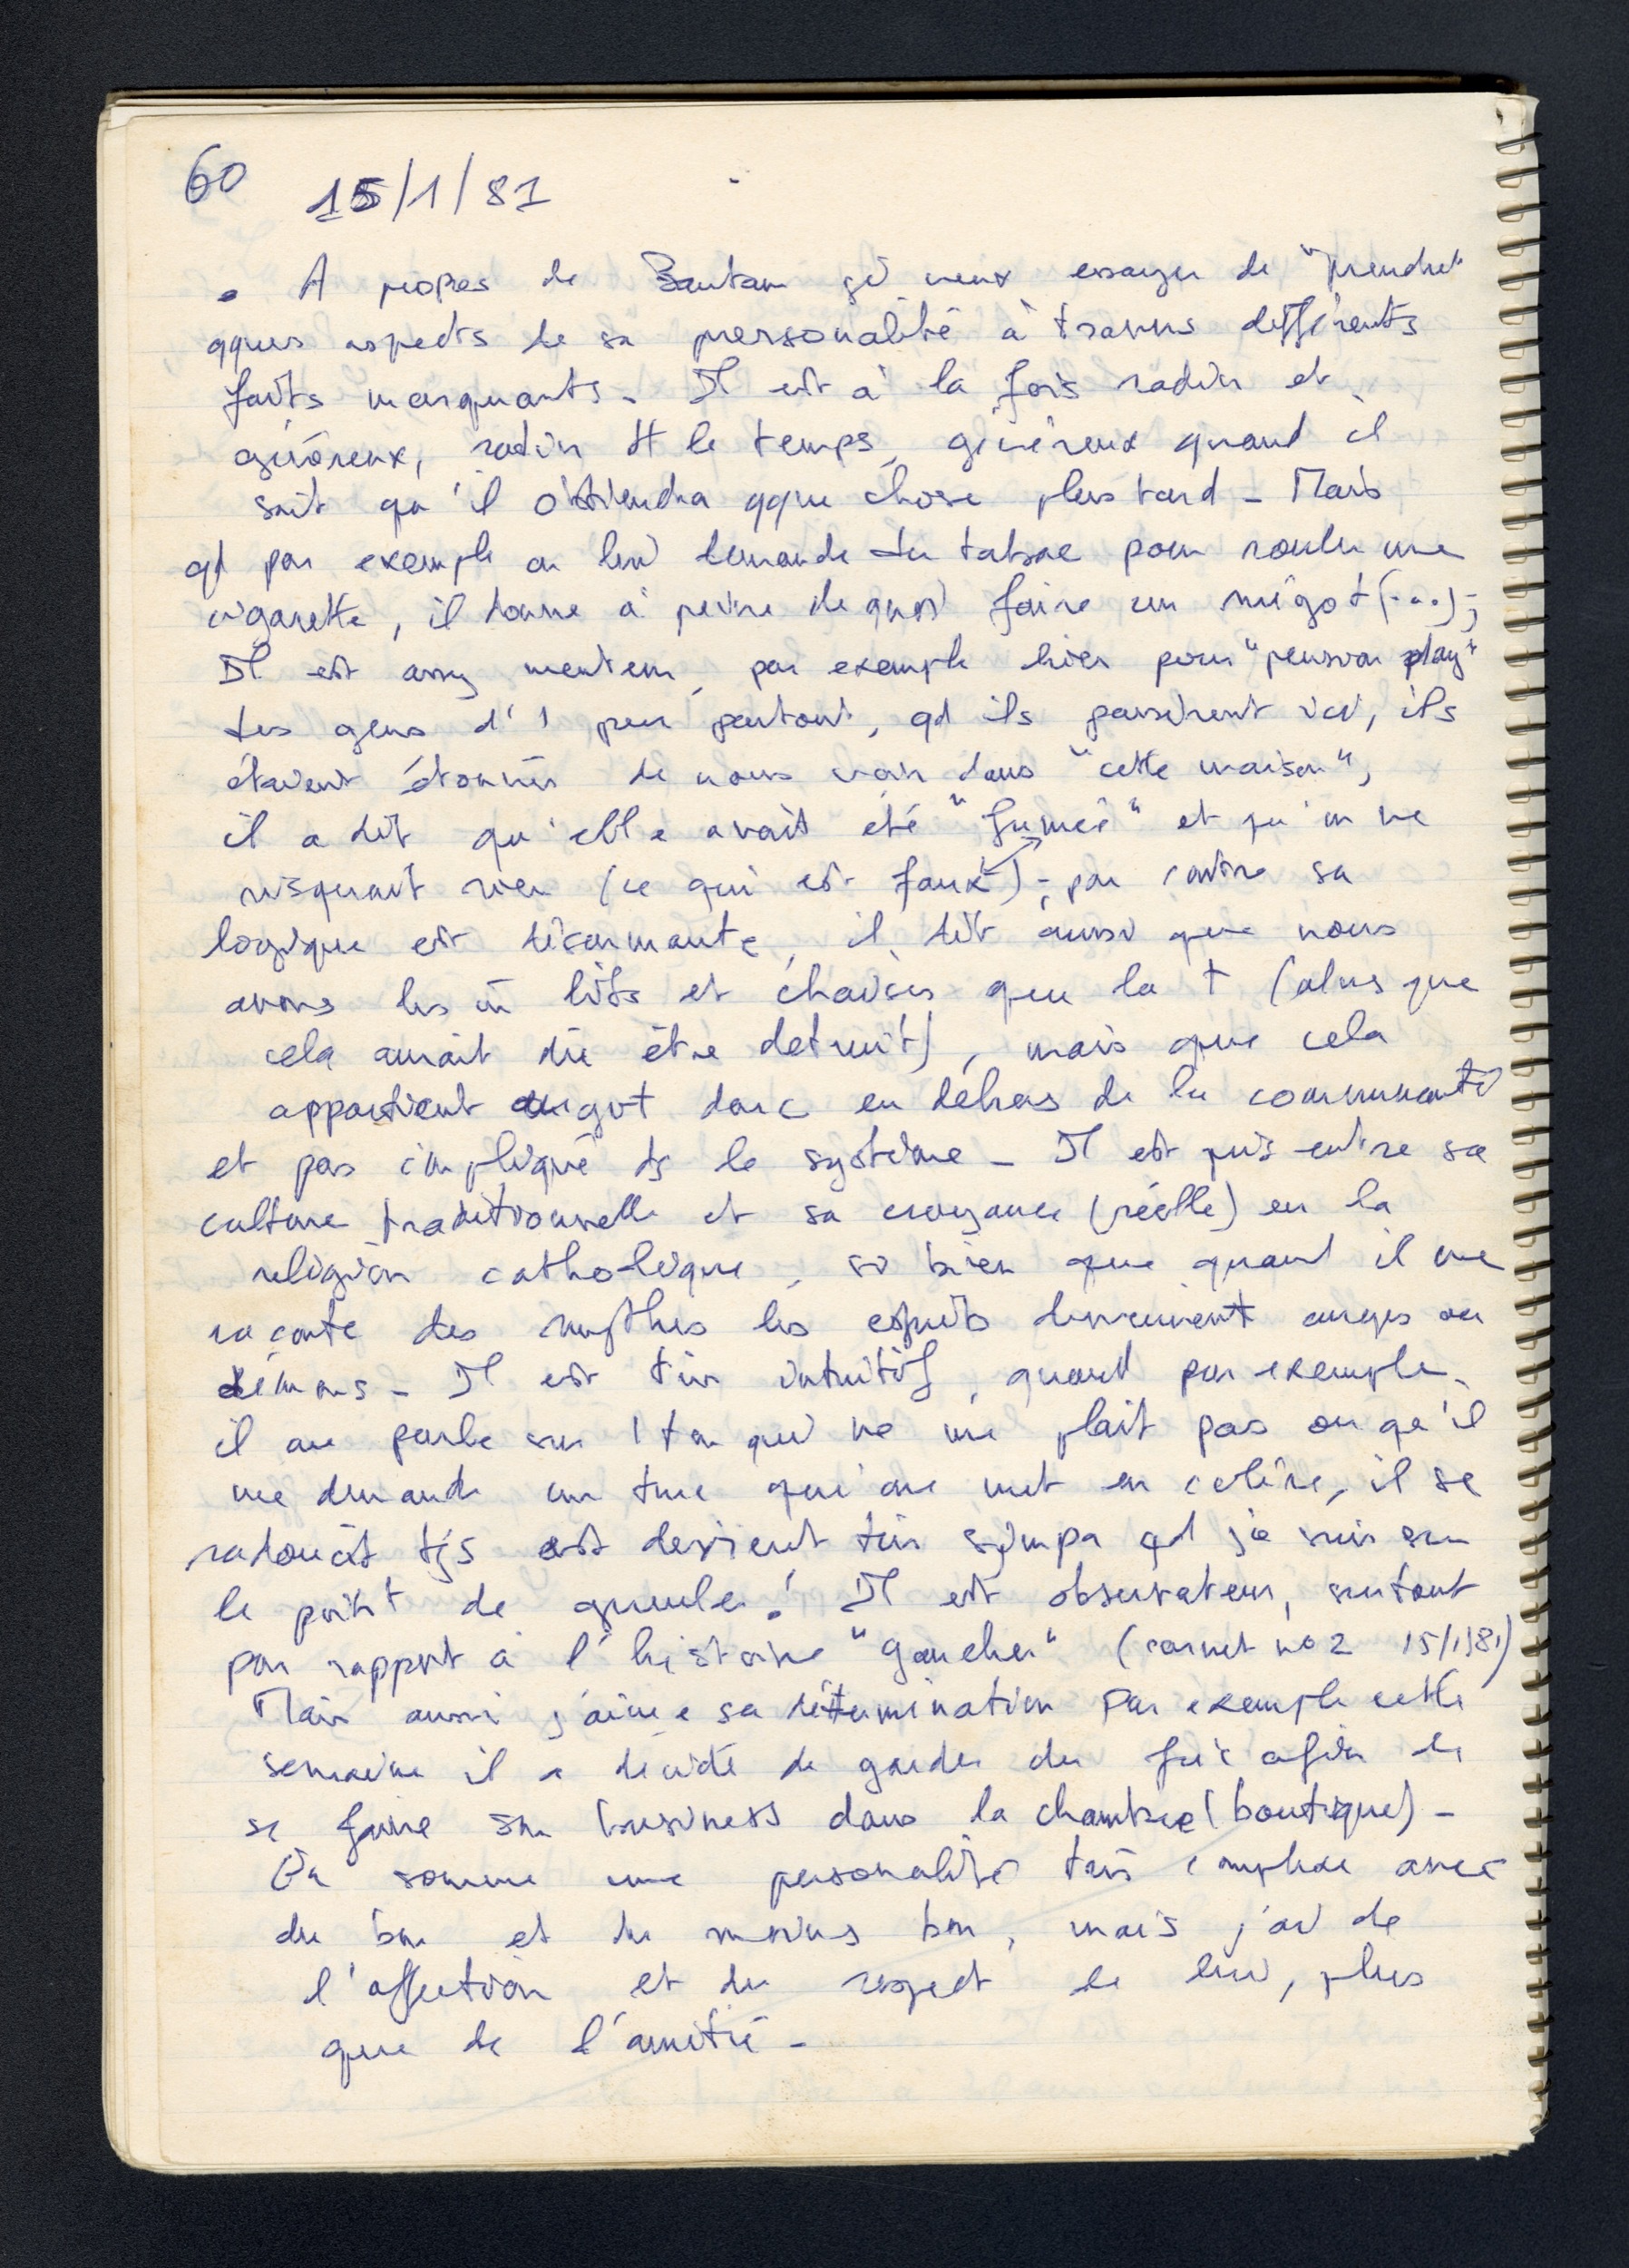 60 15/1/81
. A propos de Bantam je veux essayer de "prendre"
qques aspects de sa personalité à travers différents
faits marquants - Il est à la fois radin et
généreux, radin tt le temps, généreux quand il
sait qu'il obtiendra qque chose plus tard - Mais
qd par exemple on lui demande du tabac pour rouler une
cigarette, il donne à peine de quoi faire un mégot (...);
Il est assy menteur, par exemple hier pour "penson play"
des gens d'1 peu partout, qd ils passèrent ici, ils
étaient étonnés de nous voir dans "cette maison",
il a dit qu'elle avait été "fumée" et qu'on ne
risquait rien (ce qui est faux) ; par contre sa
logique est désarmante, il dit aussi que nous
avons les m̂ lits et chaises que la † (alors que
cela aurait dû être detruit), mais que cela
appartient au gvt donc en dehors de la communauté
et pas impliqué ds le système - Il est pris entre sa
culture traditionnelle et sa croyance (réelle) en la
religion catholique, si bien que quand il me
raconte des mythes les esprits deviennent anges ou
démons - Il est très intuitif, quand par exemple
il me parle sur 1 ton qui ne me plait pas ou qu'il
me demande un truc qui me met en colère, il se
radoucit tjs et devient très sympa qd je suis sur
le point de gueuler ! Il est observateur, surtout
par rapport à l'histoire "gaucher" (carnet no 2 15/1/81)
Mais aussi j'aime sa détermination par exemple cette
semaine il a décidé de garder du fric afin de
se faire son business dans la chambre (boutique) -
En somme une personalité très complexe avec
du bon et du moins bon, mais j'ai de
l'affection et du respect de lui, plus
que de l'amitié -